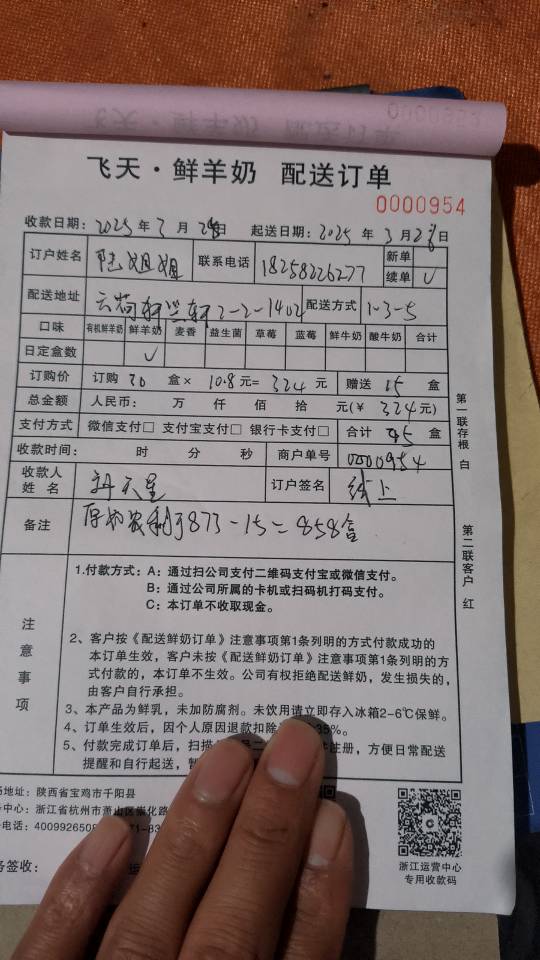 飞天·鲜羊奶 配送订单
0000954
收款日期：2025年3月28日 起送日期：2025年3月28日
订户姓名 陆姐姐 联系电话 18258226277 新单
续单 ✓
配送地址 2-2-1402 配送方式 1-3-5
口味 有机鲜羊奶 鲜羊奶 麦香 益生菌 草莓 蓝莓 鲜牛奶 酸牛奶 合计
日定盒数 ✓
订购价 订购 30 盒× 10.8元= 324 元 赠送 15 盒
总金额 人民币： 万 仟 佰 拾 元(￥ 324元)
支付方式 微信支付□ 支付宝支付□ 银行卡支付□ 合计 45 盒
收款时间： 时 分 秒 商户单号 0000954
收款人姓名 订户签名 线上
备注 873-15=858盒
注意事项
1.付款方式：A：通过扫公司支付二维码支付宝或微信支付。
B：通过公司所属的卡机或扫码机打码支付。
C：本订单不收取现金。
2、客户按《配送鲜奶订单》注意事项第1条列明的方式付款成功的
本订单生效，客户未按《配送鲜奶订单》注意事项第1条列明的方
式付款的，本订单不生效。公司有权拒绝配送鲜奶，发生损失的，
由客户自行承担。
3、本产品为鲜乳，未加防腐剂。未饮用请立即存入冰箱2-6℃保鲜。
4、订单生效后，因个人原因退款扣除 35%。
5、付款完成订单后，扫描 注册，方便日常配送
提醒和自行起送，
地址：陕西省宝鸡市千阳县
中心：浙江省杭州市萧山区崇化路
电话：4009926508
签收：
浙江运营中心
专用收款码
第一联存根 白
第二联客户 红